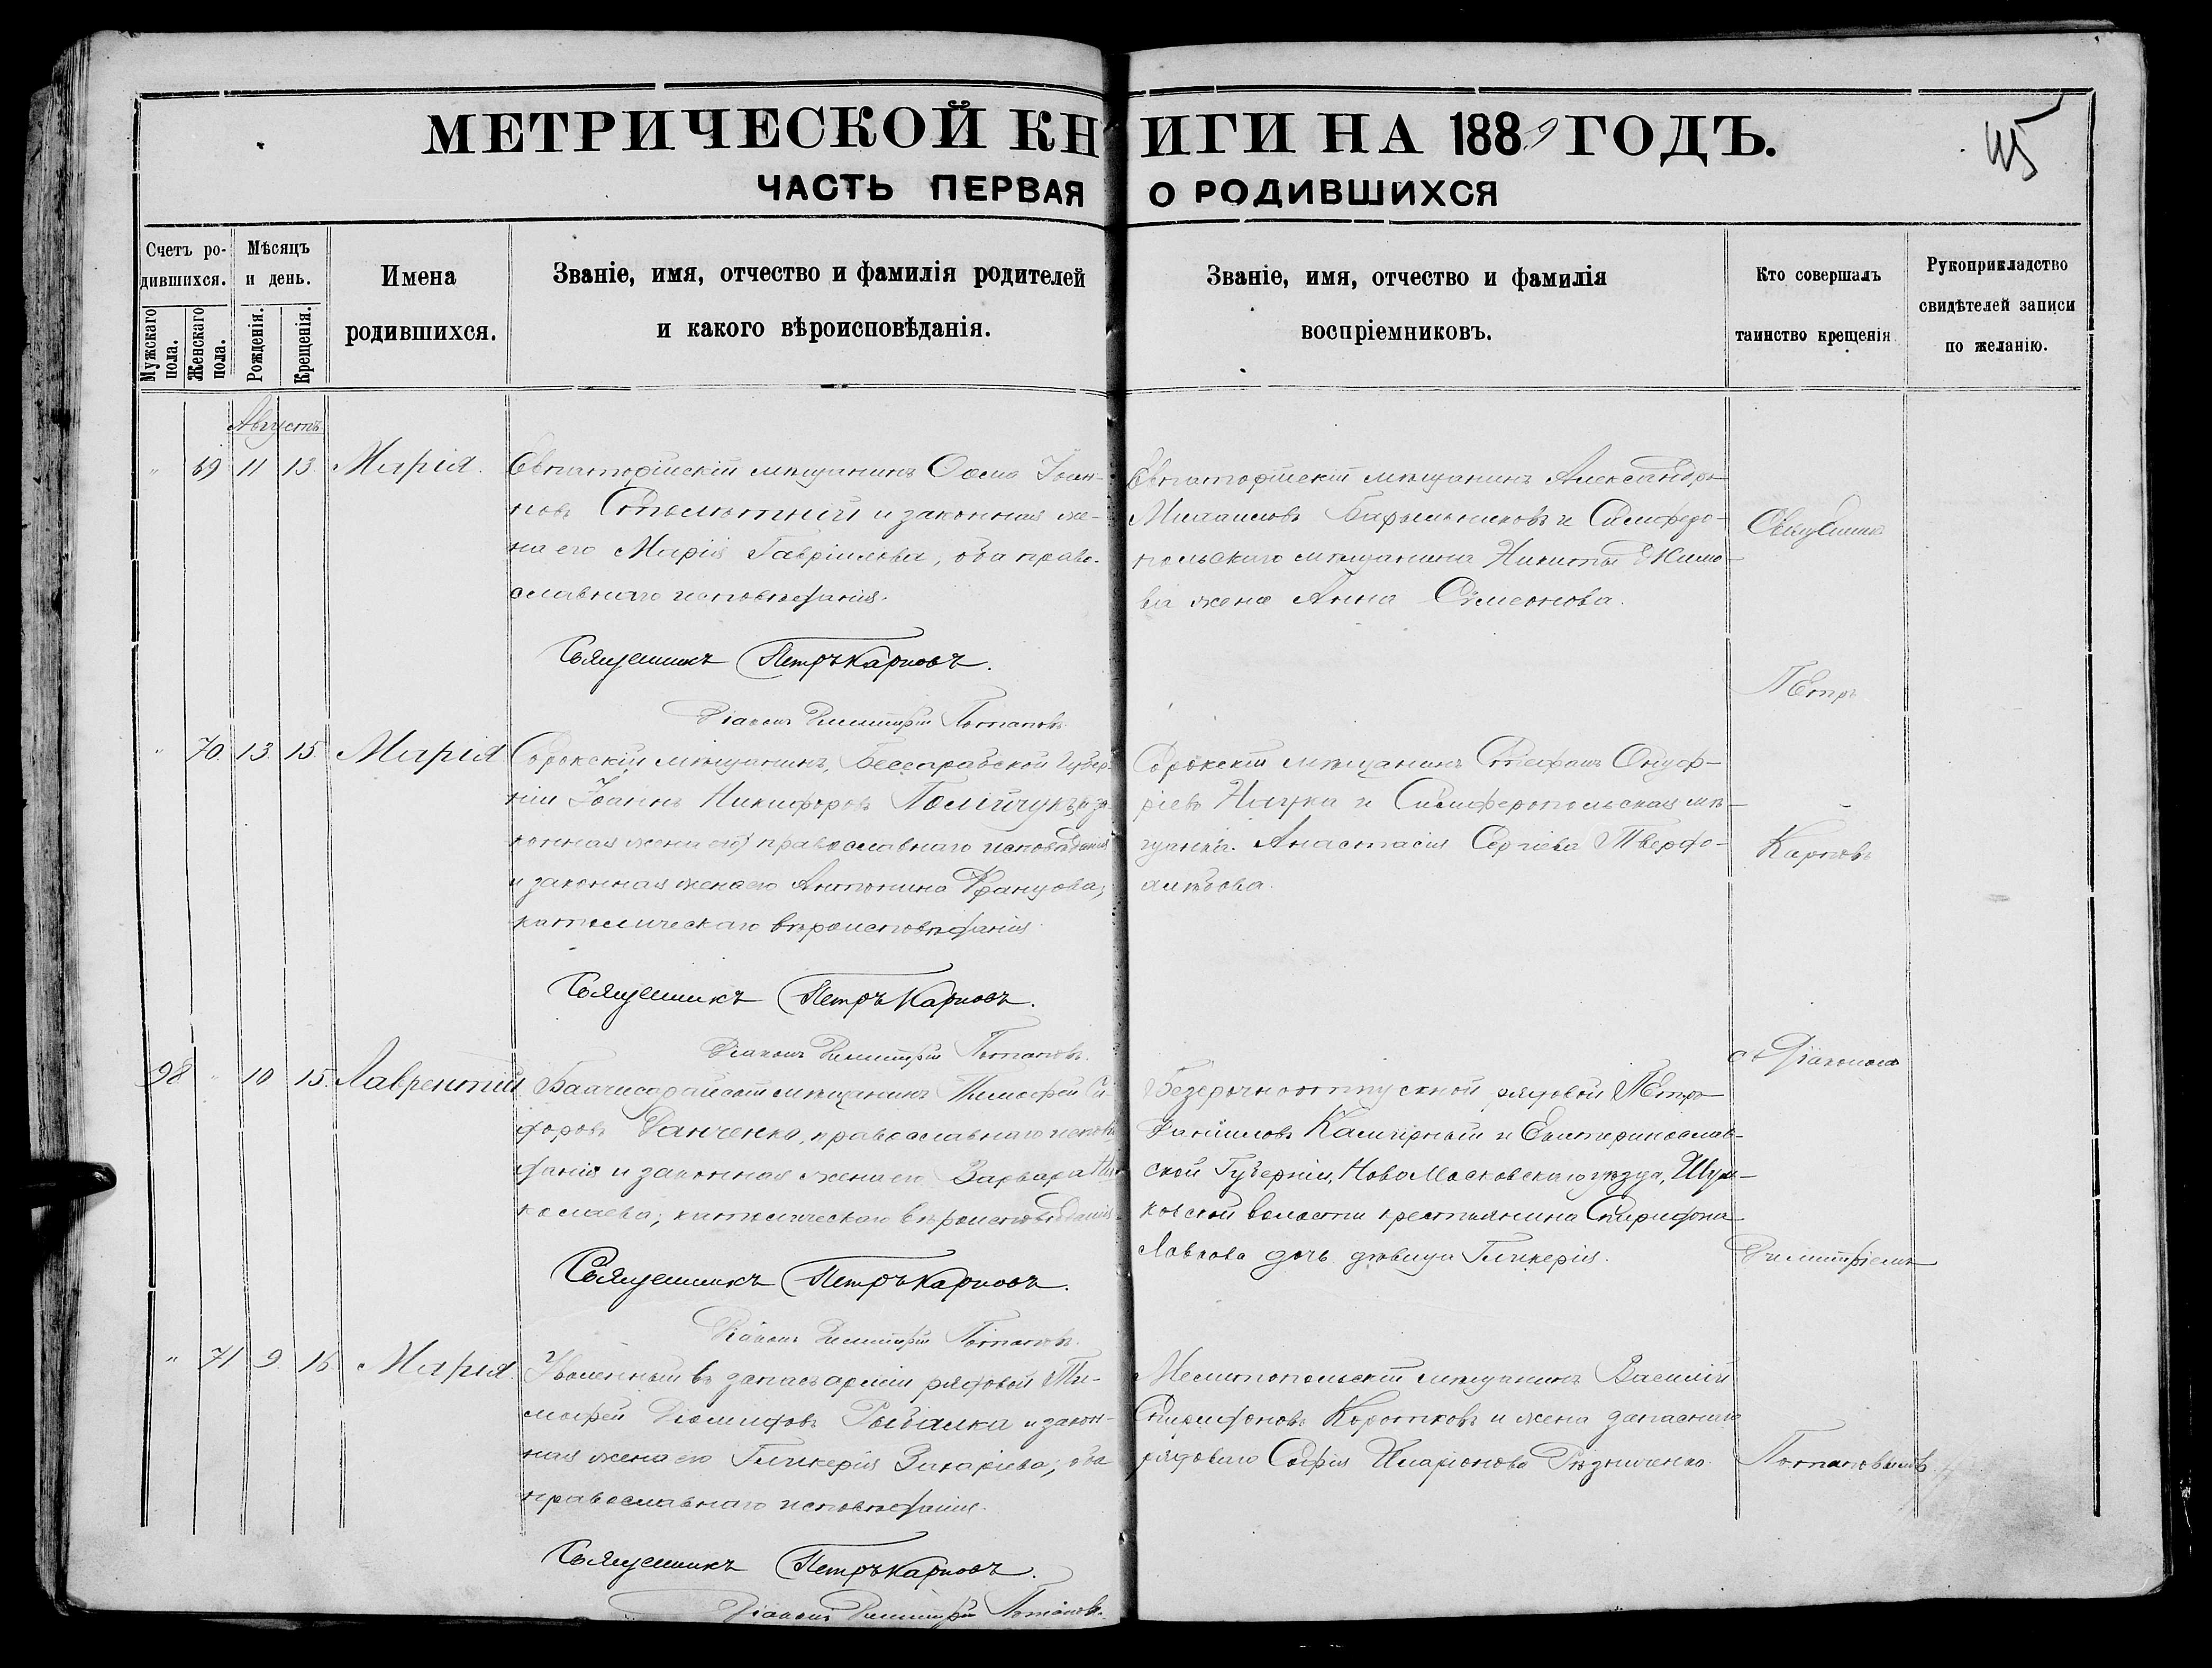 МЕТРИЧЕСКОЙ КНИГИ НА 1889 ГОДЪ.
45
ЧАСТЬ ПЕРВАЯ О РОДИВШИХСЯ
Счетъ родившихся.
Мужскаго пола.
Женскаго пола.
Мѣсяцъ и день.
Рожденія.
Крещенія.
Имена
родившихся.
Званіе, имя, отчество и фамилія родителей
и какого вѣроисповѣданія.
Званіе, имя, отчество и фамилія
воспріемниковъ.
Кто совершалъ
таинство крещенія
Рукоприкладство
свидѣтелей записи
по желанію.
Августъ
" 69 11 13 Марія.
Евпаторійскій мѣщанинъ Іоан-
новъ и законная же-
на его Марія Гавріилова, оба право-
славнаго исповѣданія.
Священникъ Петръ Карповъ.
Діаконъ Димитрій Потаповъ
Евпаторійскій мѣщанинъ Александръ
Михаиловъ и Симферо-
польскаго мѣщанина Никиты Екимо-
ва жена Анна Симеонова.
" 70 13 15 Марія
Сорокскій мѣщанинъ, Бессарабской Губер-
ніи Іоаннъ Никифоровъ Полійчукъ,
православнаго исповѣданія
и законная жена его Антонина Францова,
католическаго вѣроисповѣданія
Священникъ Петръ Карповъ.
Діаконъ Димитрій Потаповъ
Сорокскій мѣщанинъ Стефанъ Онуф-
ріевъ Наука и Симферопольская мѣ-
щанка Анастасія Сергіева
98 " 10 15 Лаврентій
Бахчисарайскій мѣщанинъ Тимофей Си-
форовъ Ванченко, православнаго исповѣ-
данія и законная жена его Варвара Ни-
колаева, католическаго вѣроисповѣданія
Священникъ Петръ Карповъ.
Діаконъ Димитрій Потаповъ
Безсрочноотпускной рядовой Петръ
Даніиловъ и Екатеринослав-
ской Губерніи, НовоМосковскаго уѣзда,
ской волости крестьянина Спиридона
Лавкова дочь дѣвица Гликерія.
" 71 9 16 Марія.
Уволенный въ запасъ арміи рядовой Ти-
мофей Діомидовъ Рыбалка и закон-
ная жена его Гликерія Захаріева, оба
православнаго исповѣданія.
Священникъ Петръ Карповъ.
Діаконъ Димитрій Потаповъ
Мелитопольскій мѣщанинъ Василій
Спиридоновъ Коротковъ и жена запаснаго
рядоваго Софія Иларіонова Рѣзниченко
Священникъ
Петръ
Карповъ
съ Діакономъ
Димитріемъ
Потаповымъ